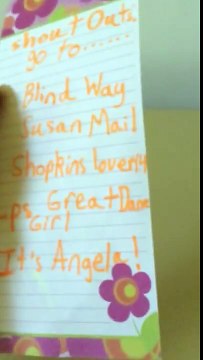 shout Outs
go to......
Blind Way
Susan Mail
Shopkins lover14
-ps Great Dane
Girl
It's Angela!